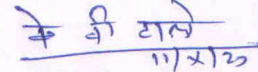 के वी टाले
11/X/23